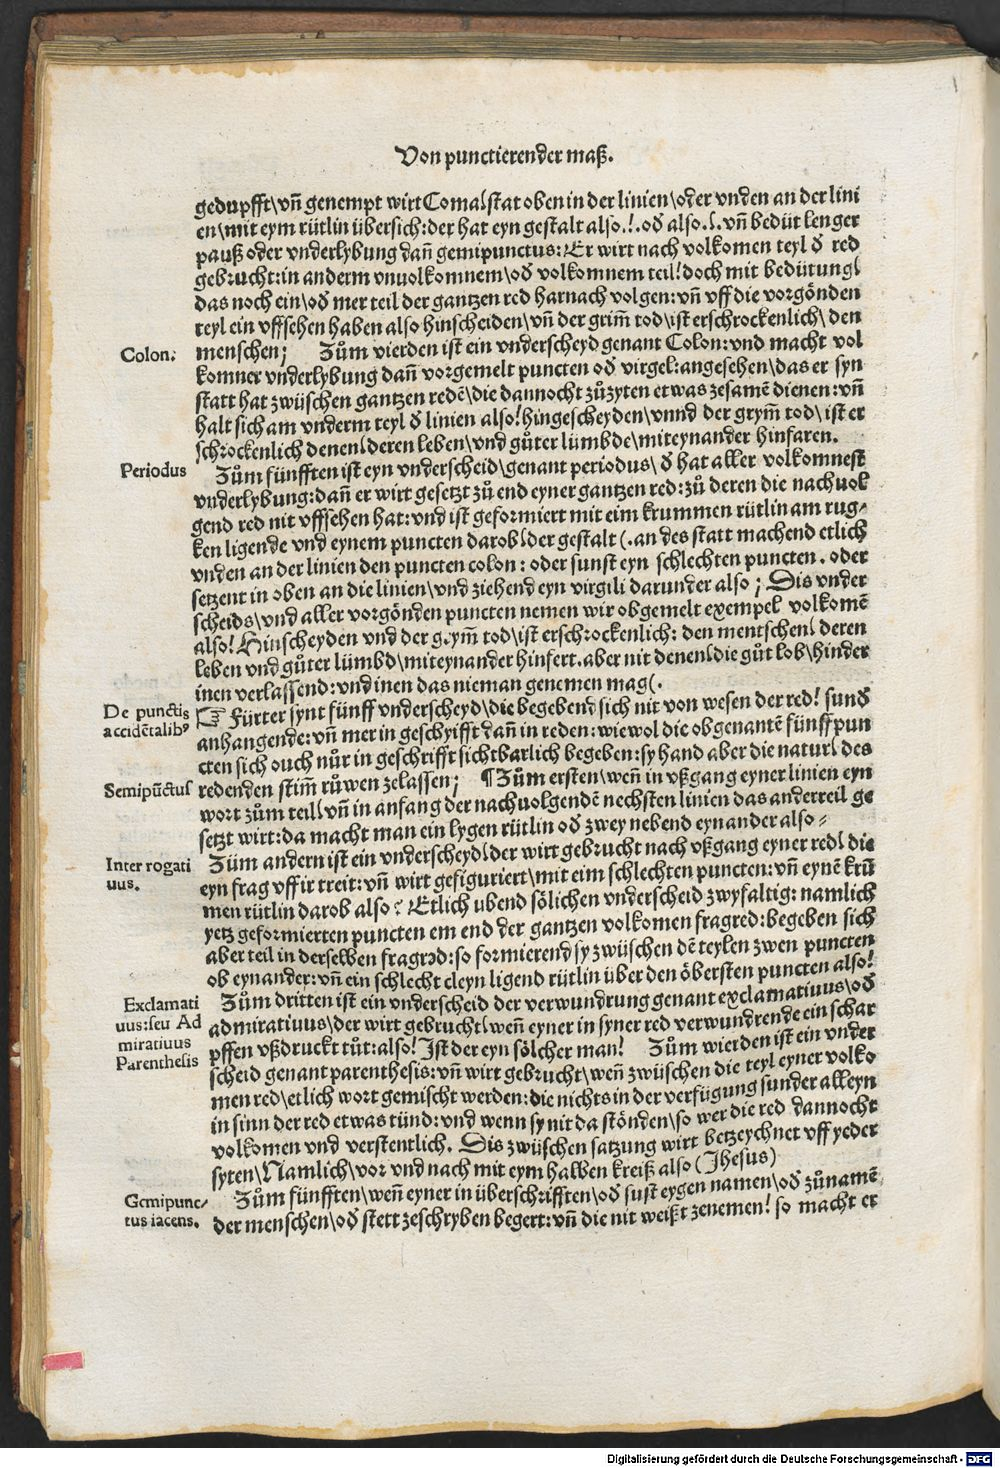 Von punctierender maß.
gedupfft\vñ genempt wirt Coma⌠stat oben in der linien\oder vnden an der lini
en\mit eym rütlin übersich:der hat eyn gestalt also.!.od̓ also.⌠. vñ bedüt lenger
pauß oder vnderlybung dañ gemipunctus:Er wirt nach volkomen teyl d̓ red
gebrucht:in anderm vnuolkomnem\od̓ volkomnem teil!doch mit bedütung⌠
das noch ein\od̓ mer teil der gantzen red harnach volgen:vñ vff die vorgönden
teyl ein vffsehen haben also hinscheiden\vñ der grim̃ tod\ist erschrockenlich⌠den
Colon:
menschen; Zům vierden ist ein vnderscheyd genant Colon:vnd macht vol
komner vnderlybung dañ vorgemelt puncten od̓ virgel:angesehen\das er syn
statt hat zwüschen gantzen redẽ\die dannocht zůzyten etwas zesamẽ dienen:vñ
halt sich am vnderm teyl d̓ linien also!hingescheyden\vnnd der grym̃ tod\ist er
schrockenlich denen⌠deren leben\vnd gůter lümbde\miteynander hinfaren.
Periodus
Zům fünfften ist eyn vnderscheid\genant periodus\d̓ hat aller volkomnest
vnderlybung:dañ er wirt gesetzt zů end eyner gantzen red:zů deren die nachuol
gend red nit vffsehen hat:vnd ist geformiert mit eim krummen rütlin am rug⸗
ken ligende vnd eynem puncten darob⌠der gestalt (.an des statt machend etlich
vnden an der linien den puncten colon: oder sunst eyn schlechten puncten. oder
setzent in oben an die linien\vnd ziehend eyn virgili darunder also; Dis vnder
scheids\vnd aller vorgönden puncten nemen wir obgemelt exempel volkomẽ
also!Hinscheyden vnd der grym̃ tod\ist erschrockenlich: den mentschen⌠deren
leben vnd gůter lümbd\miteynander hinfert.aber nit denen⌠die gůt lob\hinder
inen verlassend:vnd inen das nieman genemen mag(.
De punctis
accidẽtalibꝰ
☞ Fürter synt fünff vnderscheyd\die begebend sich nit von wesen der red! sund̓
anhangende:vñ mer in geschyifft dañ in reden:wiewol die obgenantẽ fünff pun
cten sich ouch nůr in geschrifft sichtbarlich begeben:sy hand aber die natur⌠des
Semipũctus
redenden stim̃ růwen zelassen; ¶Zům ersten\weñ in vßgang eyner linien eyn
wort zům teil⌠vñ in anfang der nachuolgendẽ nechsten linien das anderteil ge
setzt wirt:da macht man ein lygen rütlin od̓ zwey nebend eynander also⸗
Inter rogati
uus.
Zům andern ist ein vnderscheyd⌠der wirt gebrucht nach vßgang eyner red⌠die
eyn frag vff ir treit:vñ wirt gefiguriert\mit eim schlechten puncten:vñ eynẽ krũ
men rütlin darob also ? Etlich ubend sölichen vnderscheid zwyfaltig: namlich
yetz geformierten puncten em end der gantzen volkomen fragred:begeben sich
aber teil in derselben fragred:so formierend sy zwüschen dẽ teylen zwen puncten
ob eynander:vñ ein schlecht cleyn ligend rütlin über den öbersten puncten also!
Exclamati
uus:seu Ad
miratiuus
Zům dritten ist ein vnderscheid der verwundrung genant exclamatiuus\od̓
admiratiuus\der wirt gebrucht⌠weñ eyner in syner red verwundrende ein schar
pffen vßdruckt tůt:also!Ist der eyn sölcher man! Zům wierden ist ein vnder
Parenthesis
scheid genant parenthesis:vñ wirt gebrucht\weñ zwüschen die teyl eyner volko
men red\etlich wort gemischt werden:die nichts in der verfügung sunder alleyn
in sinn der red etwas tünd:vnd wenn sy nit da stönden\so wer die red dannocht
volkomen vnd verstentlich. Dis zwüschen satzung wirt betzeychnet vff yeder
syten\Namlich\vor vnd nach mit eym halben kreiß also (Jhesus)
Gemipunc⸗
tus iacens.
Zům fünfften\weñ eyner in überschrifften\od̓ sust eygen namen\od̓ zůnamẽ
der menschen\od̓ stett zeschryben begert:vñ die nit weißt zenemen! so macht er
Digitalisierung gefördert durch die Deutsche Forschungsgemeinschaft - DFG